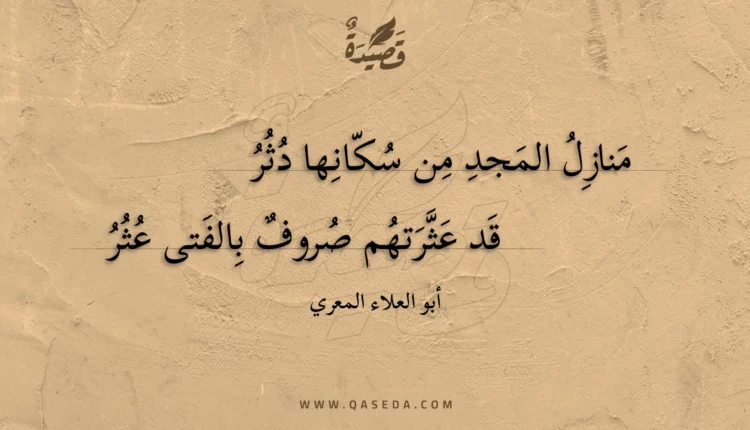 قَصِيدَةٌ
مَنازِلُ المَجدِ مِن سُكّانِها دُثُرُ
قَد عَثَّرَتهُم صُروفٌ بِالفَتى عُثُرُ
أبو العلاء المعري
WWW.QASEDA.COM